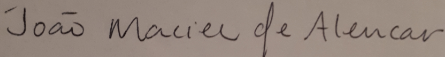 João Maciel de Alencar